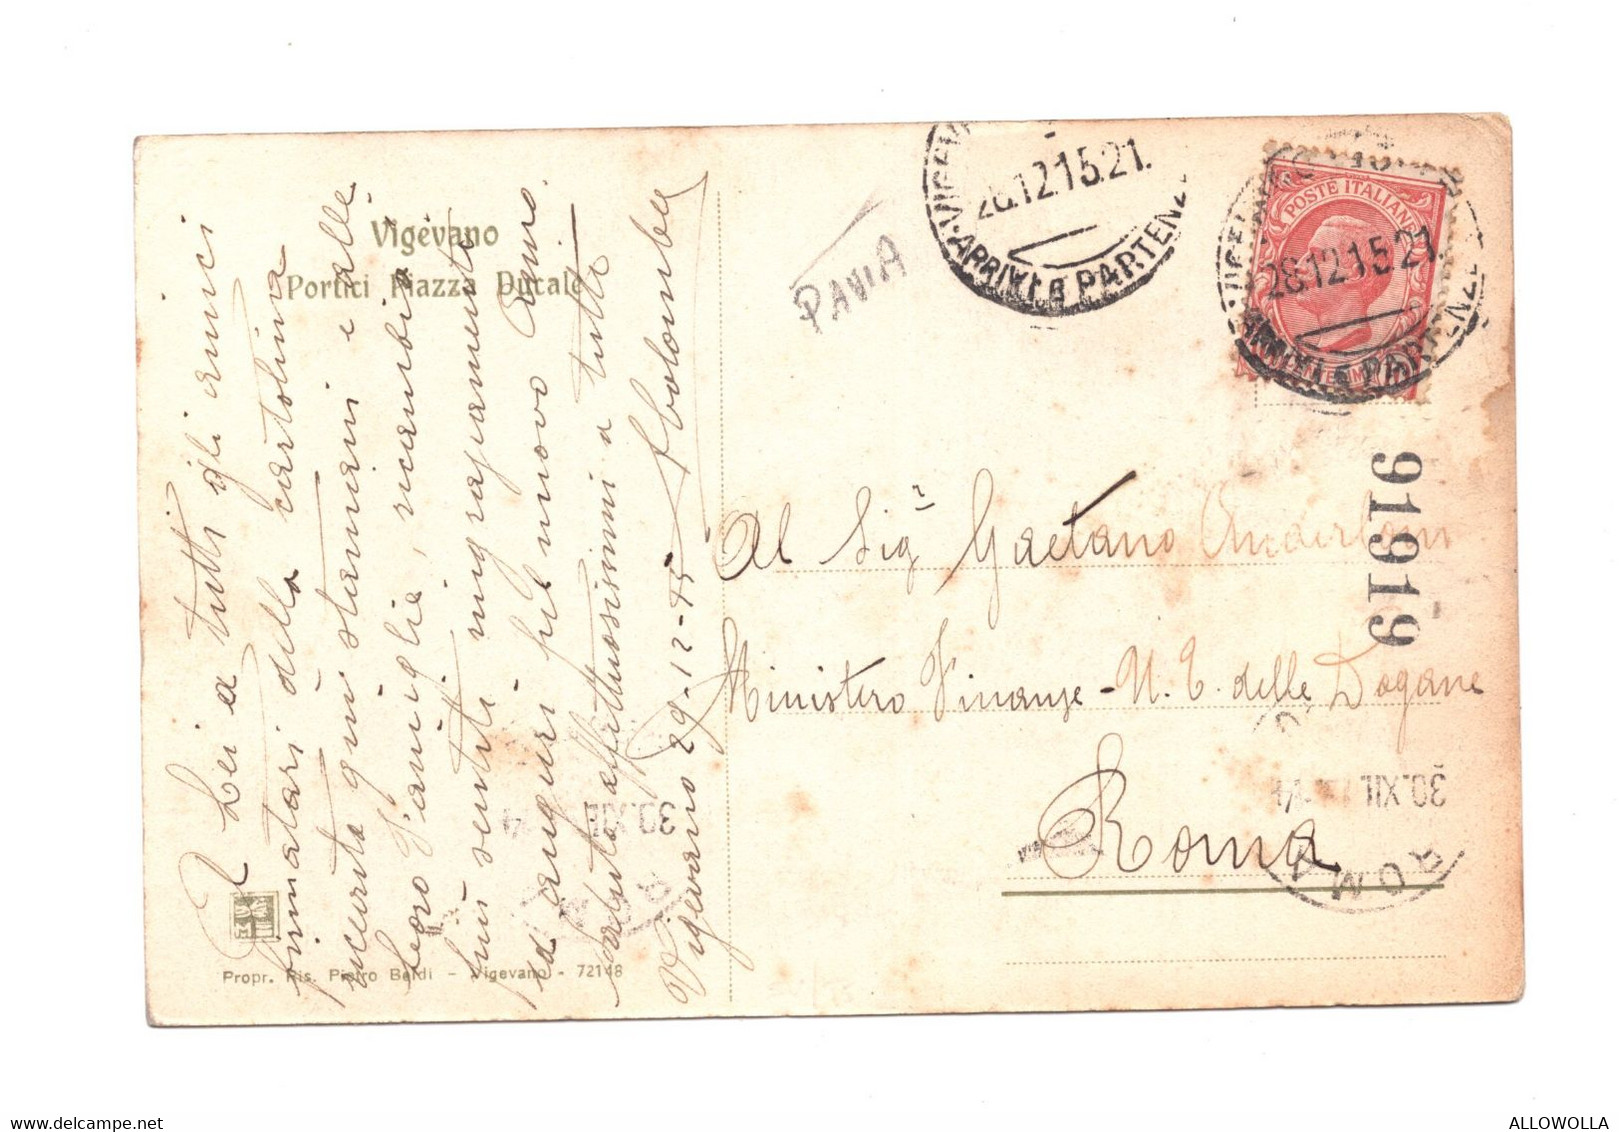 Vigevano
Portici Piazza Ducale
A Lei a tutti gli amici
firmatari della cartolina
pervenuta qui stamani e alle
Loro famiglie, ricambio i
più sentiti ringraziamenti
ed auguri pel nuovo Anno.
Saluti affettuosissimi a tutti
Vigevano 29-12-15 Colombo
Propr. Ris. Pietro Beldi - Vigevano - 72148
PAVIA
28.12.15.21.
ARRIVI E PARTENZE
POSTE ITALIANE
28.12.15.21.
ARRIVI E PARTENZE
91919
Al Sig.r Gaetano
Ministero Finanze - U. T. delle Dogane
Roma
30.XII.
ROMA
30.XII.
ALLOWOLLA